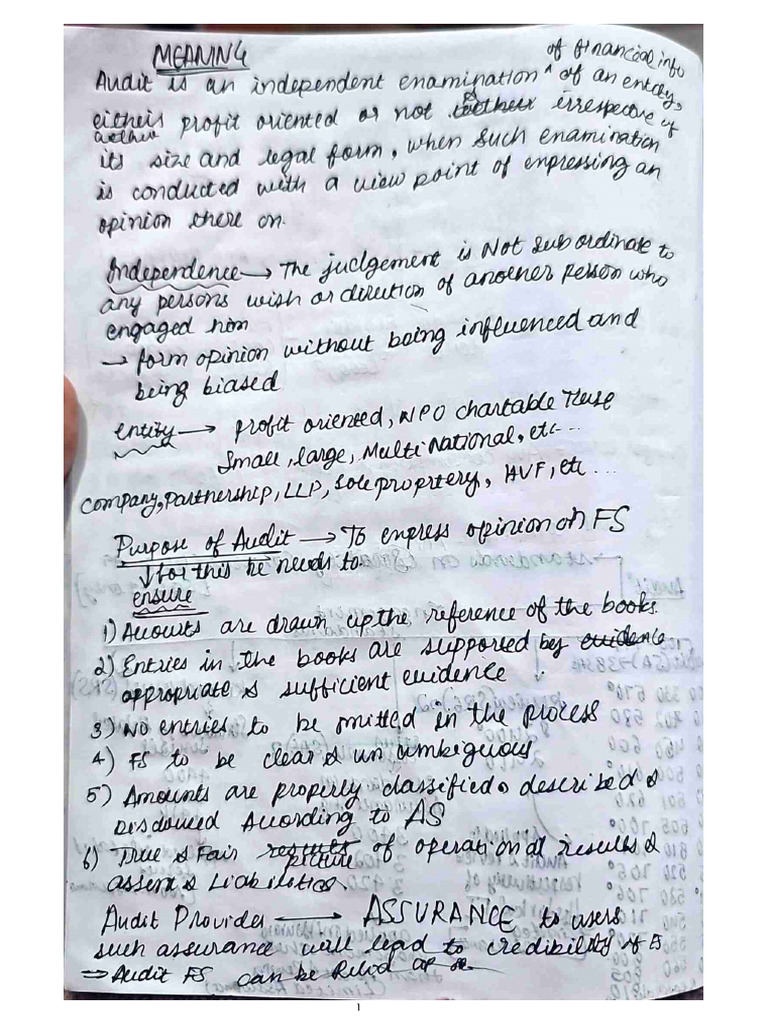 MEANING
of financial info
Audit is an independent enamination ^ of an entity,
either profit oriented or not irrespective of
its size and legal form, when such enamination
is conducted with a view point of enpressing an
opinion there on.
Independence → The judgement is Not subordinate to
any persons wish or direction of another person who
engaged him
→ form opinion without being influenced and
being biased
entity → profit oriented, NPO chartable Truse
Small, large, Multi National, etc...
Company, partnership, LLP, Sole propriery, HUF, etc...
Purpose of Audit → To enpress opinion on FS
↓ for this he needs to
ensure
1) Accounts are drawn up the reference of the books.
2) Entries in the books are supported by evidence
appropriate & sufficient evidence
3) No entries to be omitted in the process
4) FS to be clear & un ambiguous
5) Amounts are properly classified, described &
Disclouced According to AS
6) True & Fair results picture of operational results &
assets & Liabilities.
Audit Provides → ASSURANCE to users
such assurance will lead to credibility of
⇒ Audit FS can be Relied
1